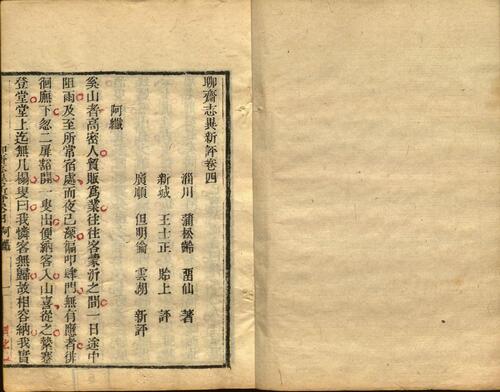 聊齋志異新評卷四
淄川 蒲松齡 畱仙 著
新城 王士正 貽上 評
廣順 但明倫 雲湖 新評
阿纖
奚山者高密人貿販爲業往往客蒙沂之間一日途中
阻雨及至所常宿處而夜已深徧叩肆門無有應者徘
徊廡下忽二扉豁開一叟出便納客入山喜從之縶蹇
登堂堂上迄無几榻叟曰我憐客無歸故相容納我實
阿纖